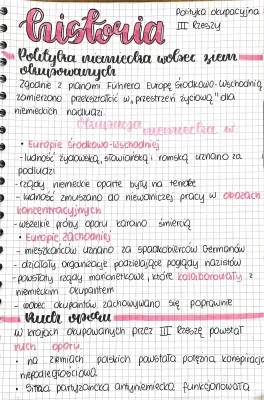 historia
Polityka okupacyjna
III Rzeszy
Polityka niemiecka wobec ziem
okupowanych
Zgodnie z planami Führera Europę Środkowo-Wschodnią
zamierzano przekształcić w „przestrzeń życiową" dla
niemieckich nadludzi
Okupacja niemiecka w
• Europie Środkowo-Wschodniej
-ludność żydowską, słowiańską i romską uznano za
podludzi
-rządy niemieckie oparte były na terrorze
-ludność zmuszano do niewolniczej pracy w obozach
koncentracyjnych
-wszelkie próby oporu karano śmiercią
• Europie Zachodniej
-mieszkańców uznano za spadkobierców Germanów
-działały organizacje podzielające poglądy nazistów
-powstały rządy marionetkowe, które kolaborowały z
niemieckim okupantem
-wobec okupantów zachowywano się poprawnie
Ruch oporu
w krajach okupowanych przez III Rzeszę powstał
ruch oporu.
• na ziemiach polskich powstała potężna konspiracja
niepodległościowa
• silna partyzantka antyniemiecka funkcjonowała